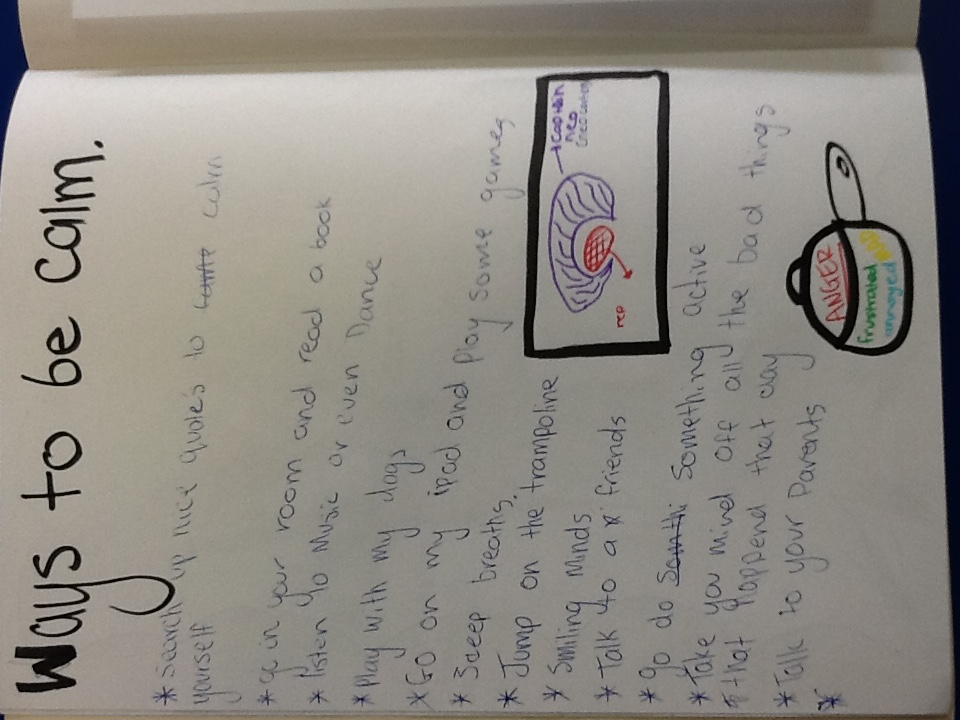 Ways to be calm.
* Search up nice quote's to calm
yourself
* go in your room and read a book
* listen to Music or even Dance
* Play with my dogs
* Go on my ipad and Play some games
* 3 deep breaths.
* Jump on the trampoline
* Smiling Minds
* Talk to a friends
* go do Something active
* Take you mind off all the bad things
that happend that day
* Talk to your Parents
*
captain
neo
(neo cortex)
rep
ANGER
frustrated
annoyed